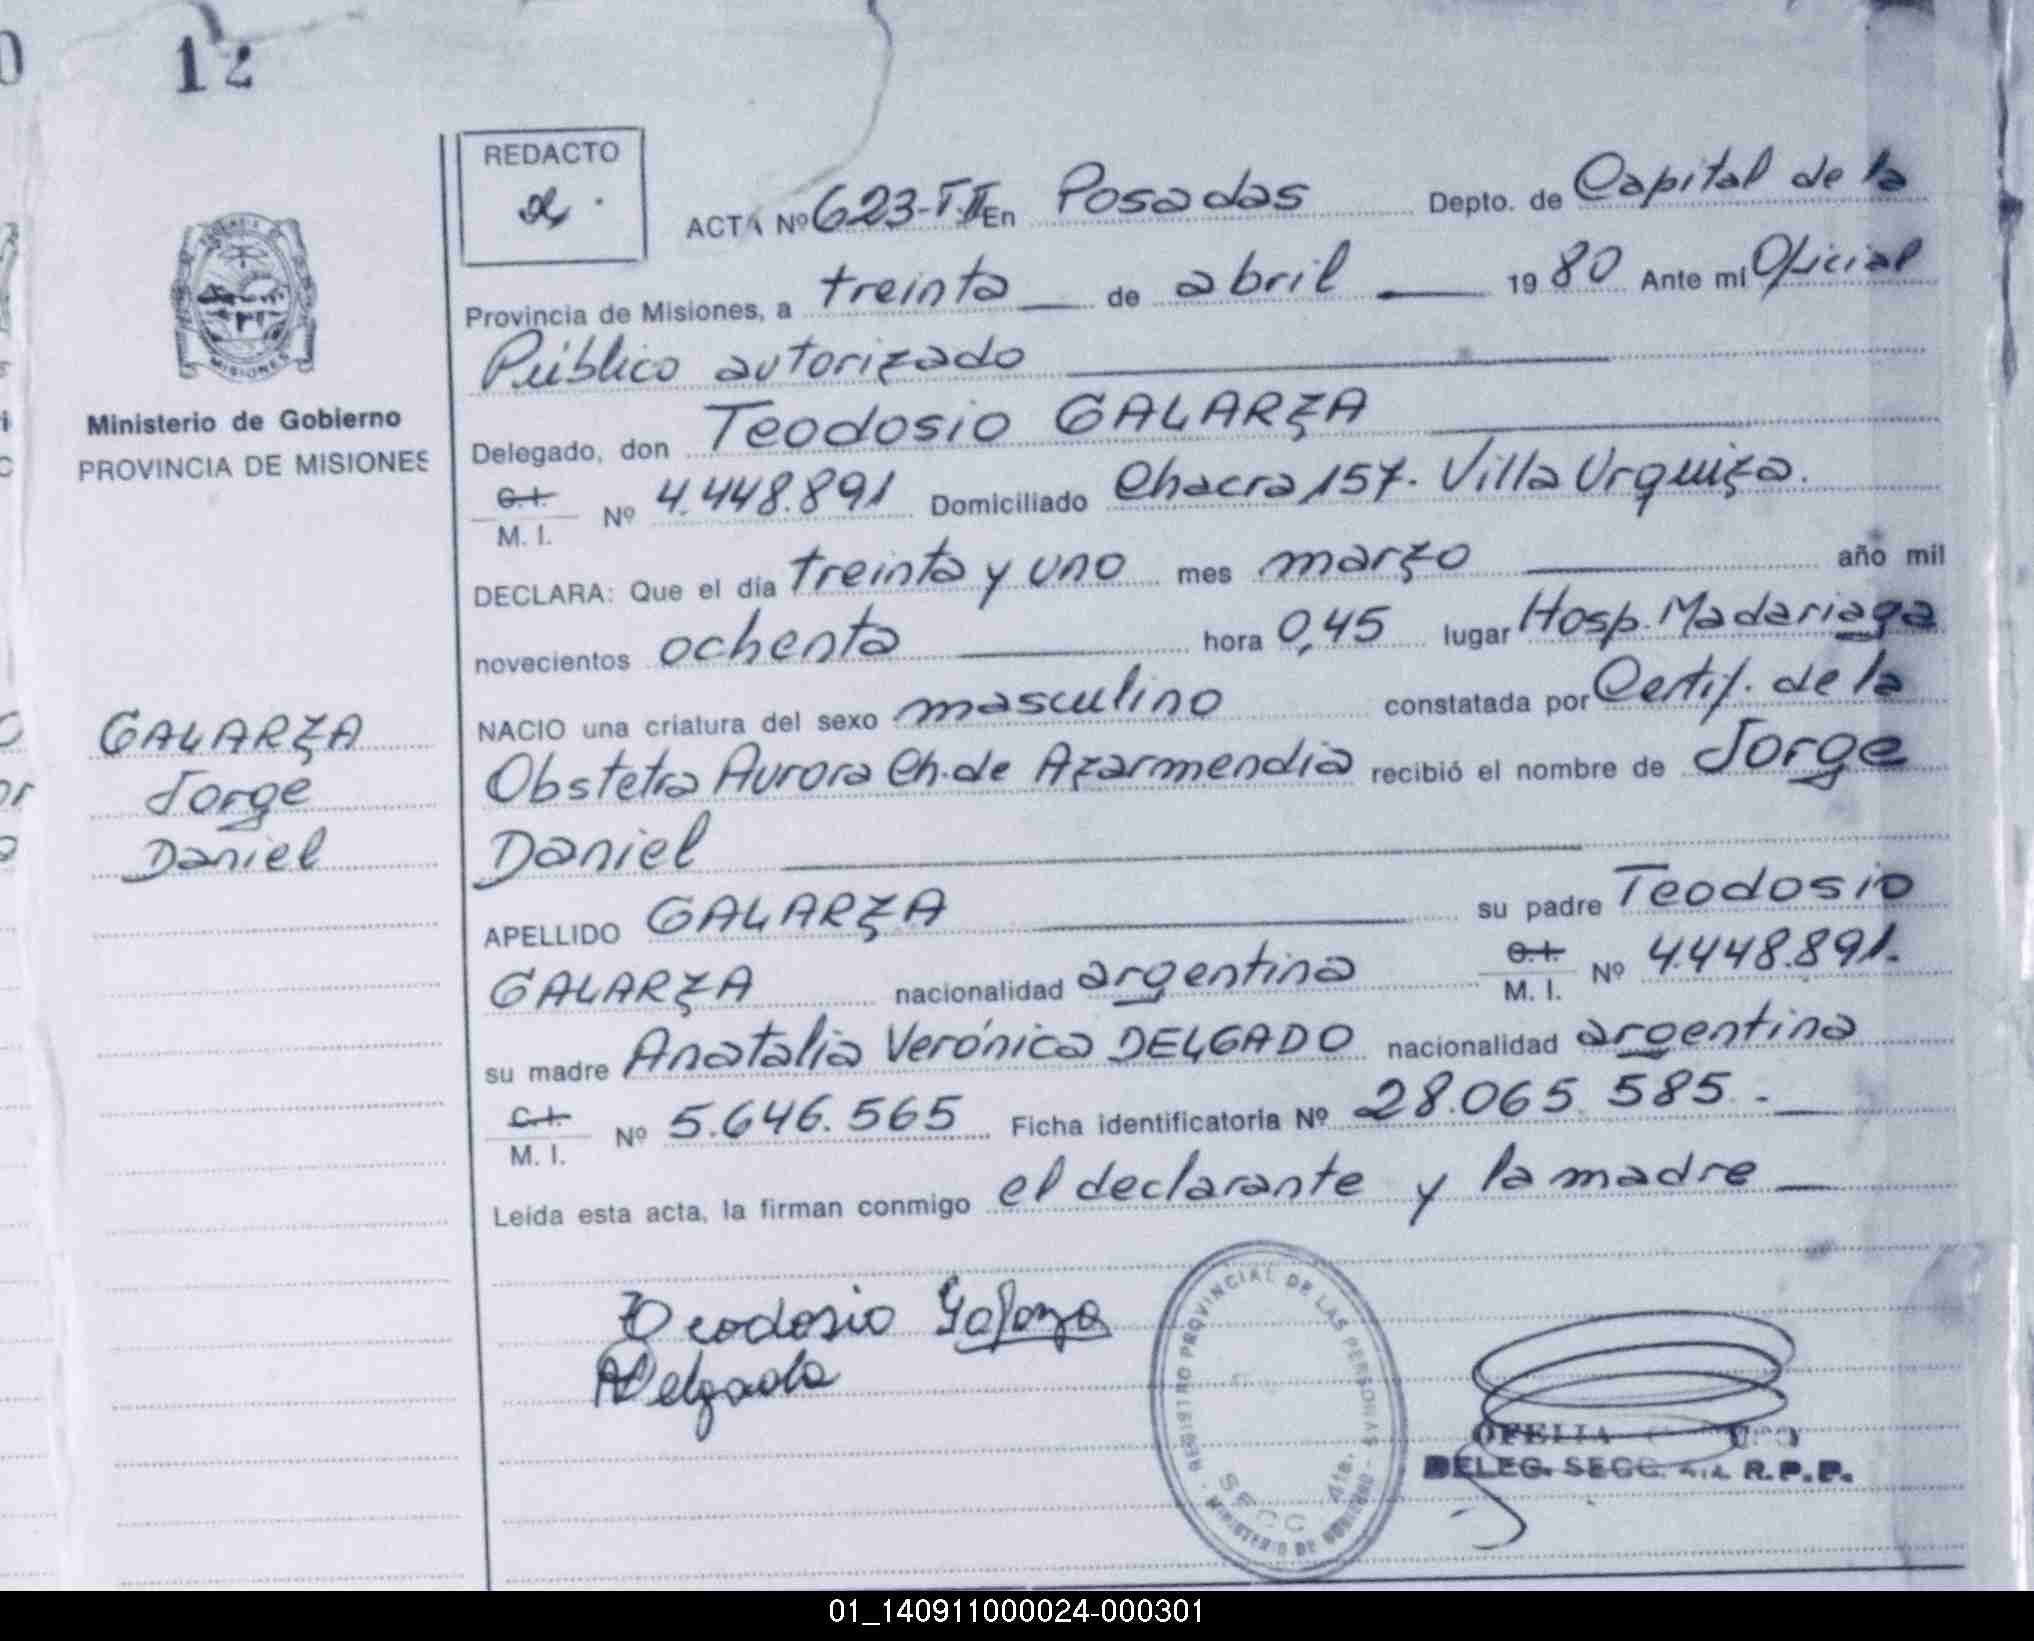 12
REDACTO
ACTA Nº 623-TII En Posadas Depto. de Capital de la
Provincia de Misiones, a treinta de abril 1980 Ante mí Oficial
Público autorizado
Delegado, don Teodosio GALARZA
C.I. M. I. Nº 4.448.891 Domiciliado Chacra 157. Villa Urquiza.
DECLARA: Que el día treinta y uno mes marzo año mil
novecientos ochenta hora 0,45 lugar Hosp. Madariaga
NACIO una criatura del sexo masculino constatada por Certif. de la
Obstetra Aurora Ch. de Azarmendia recibió el nombre de Jorge
Daniel
APELLIDO GALARZA su padre Teodosio
GALARZA nacionalidad argentina C.I. M. I. Nº 4.448.891.
su madre Anatalia Verónica DELGADO nacionalidad argentina
C.I. M. I. Nº 5.646.565 Ficha identificatoria Nº 28.065.585.-
Leída esta acta, la firman conmigo el declarante y la madre
MISIONES
Ministerio de Gobierno
PROVINCIA DE MISIONES
GALARZA
Jorge
Daniel
Teodosio Galarza
ADelgado
REGISTRO PROVINCIAL DE LAS PERSONAS
SECC. 4ta.
MINISTERIO DE GOBIERNO
OFELIA
DELEG. SECC. 4ta. R.P.P.
01_140911000024-000301